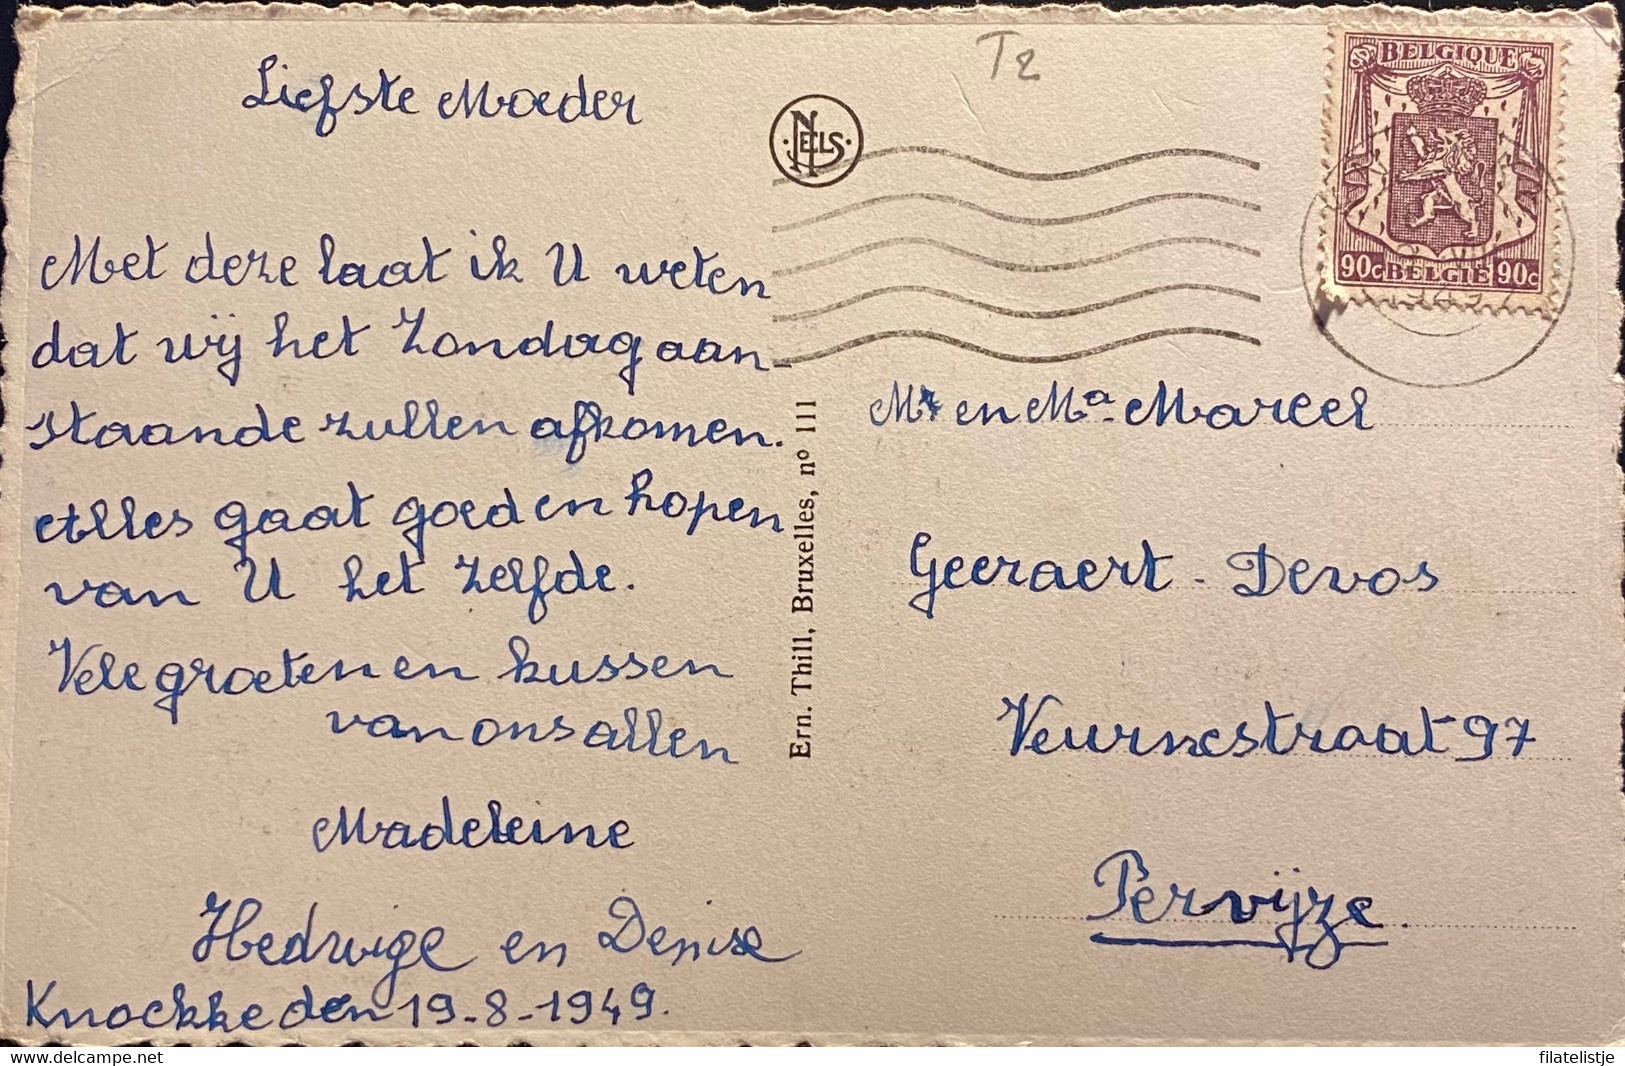 Liefste Moeder
Met deze laat ik U weten
dat wij het Zondag aan-
staande zullen afkomen.
Alles gaat goed en hopen
van U het zelfde.
Vele groeten en kussen
van ons allen
Madeleine
Hedwige en Denise
Knockke den 19-8-1949.
Tz
NELS
Ern. Thill, Bruxelles, nº 111
BELGIQUE
90c BELGIË 90c
Mr en Ma Marcel
Geeraert - Devos
Veurnestraat 97
Pervijze
filatelistje